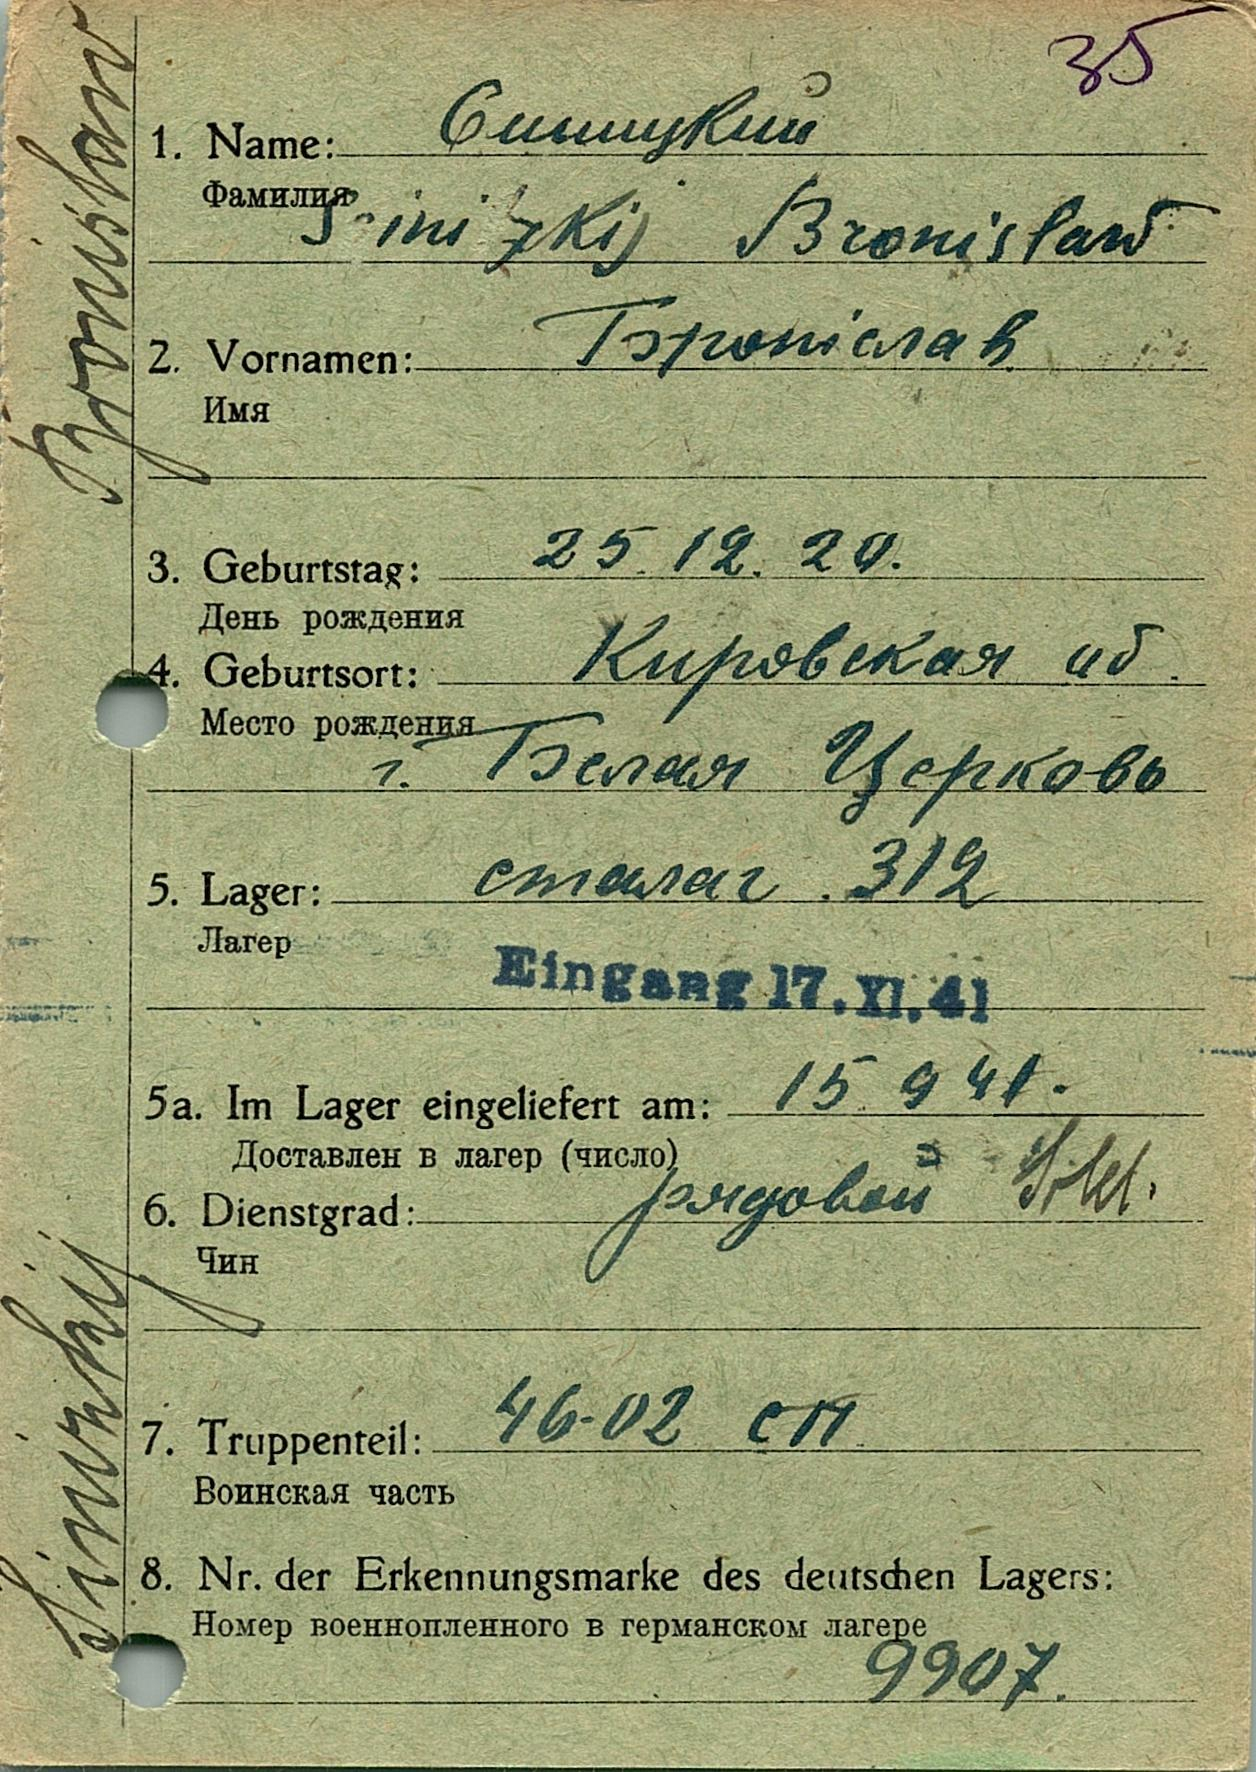 35
1. Name: Синицкий
Фамилия
Sinizkij Bronislaw
2. Vornamen: Броніслав
Имя
3. Geburtstag: 25.12.20.
День рождения
4. Geburtsort: Кировская об.
Место рождения
г. Белая Церковь
5. Lager: сталаг. 312
Лагер
Eingang 17.XI.41
5a. Im Lager eingeliefert am: 15 9 41.
Доставлен в лагер (число)
6. Dienstgrad: рядовой Sold.
Чин
7. Truppenteil: 46-02 сп
Воинская часть
8. Nr. der Erkennungsmarke des deutschen Lagers:
Номер военнопленного в германском лагере
9907.
Sinizkij Bronislaw